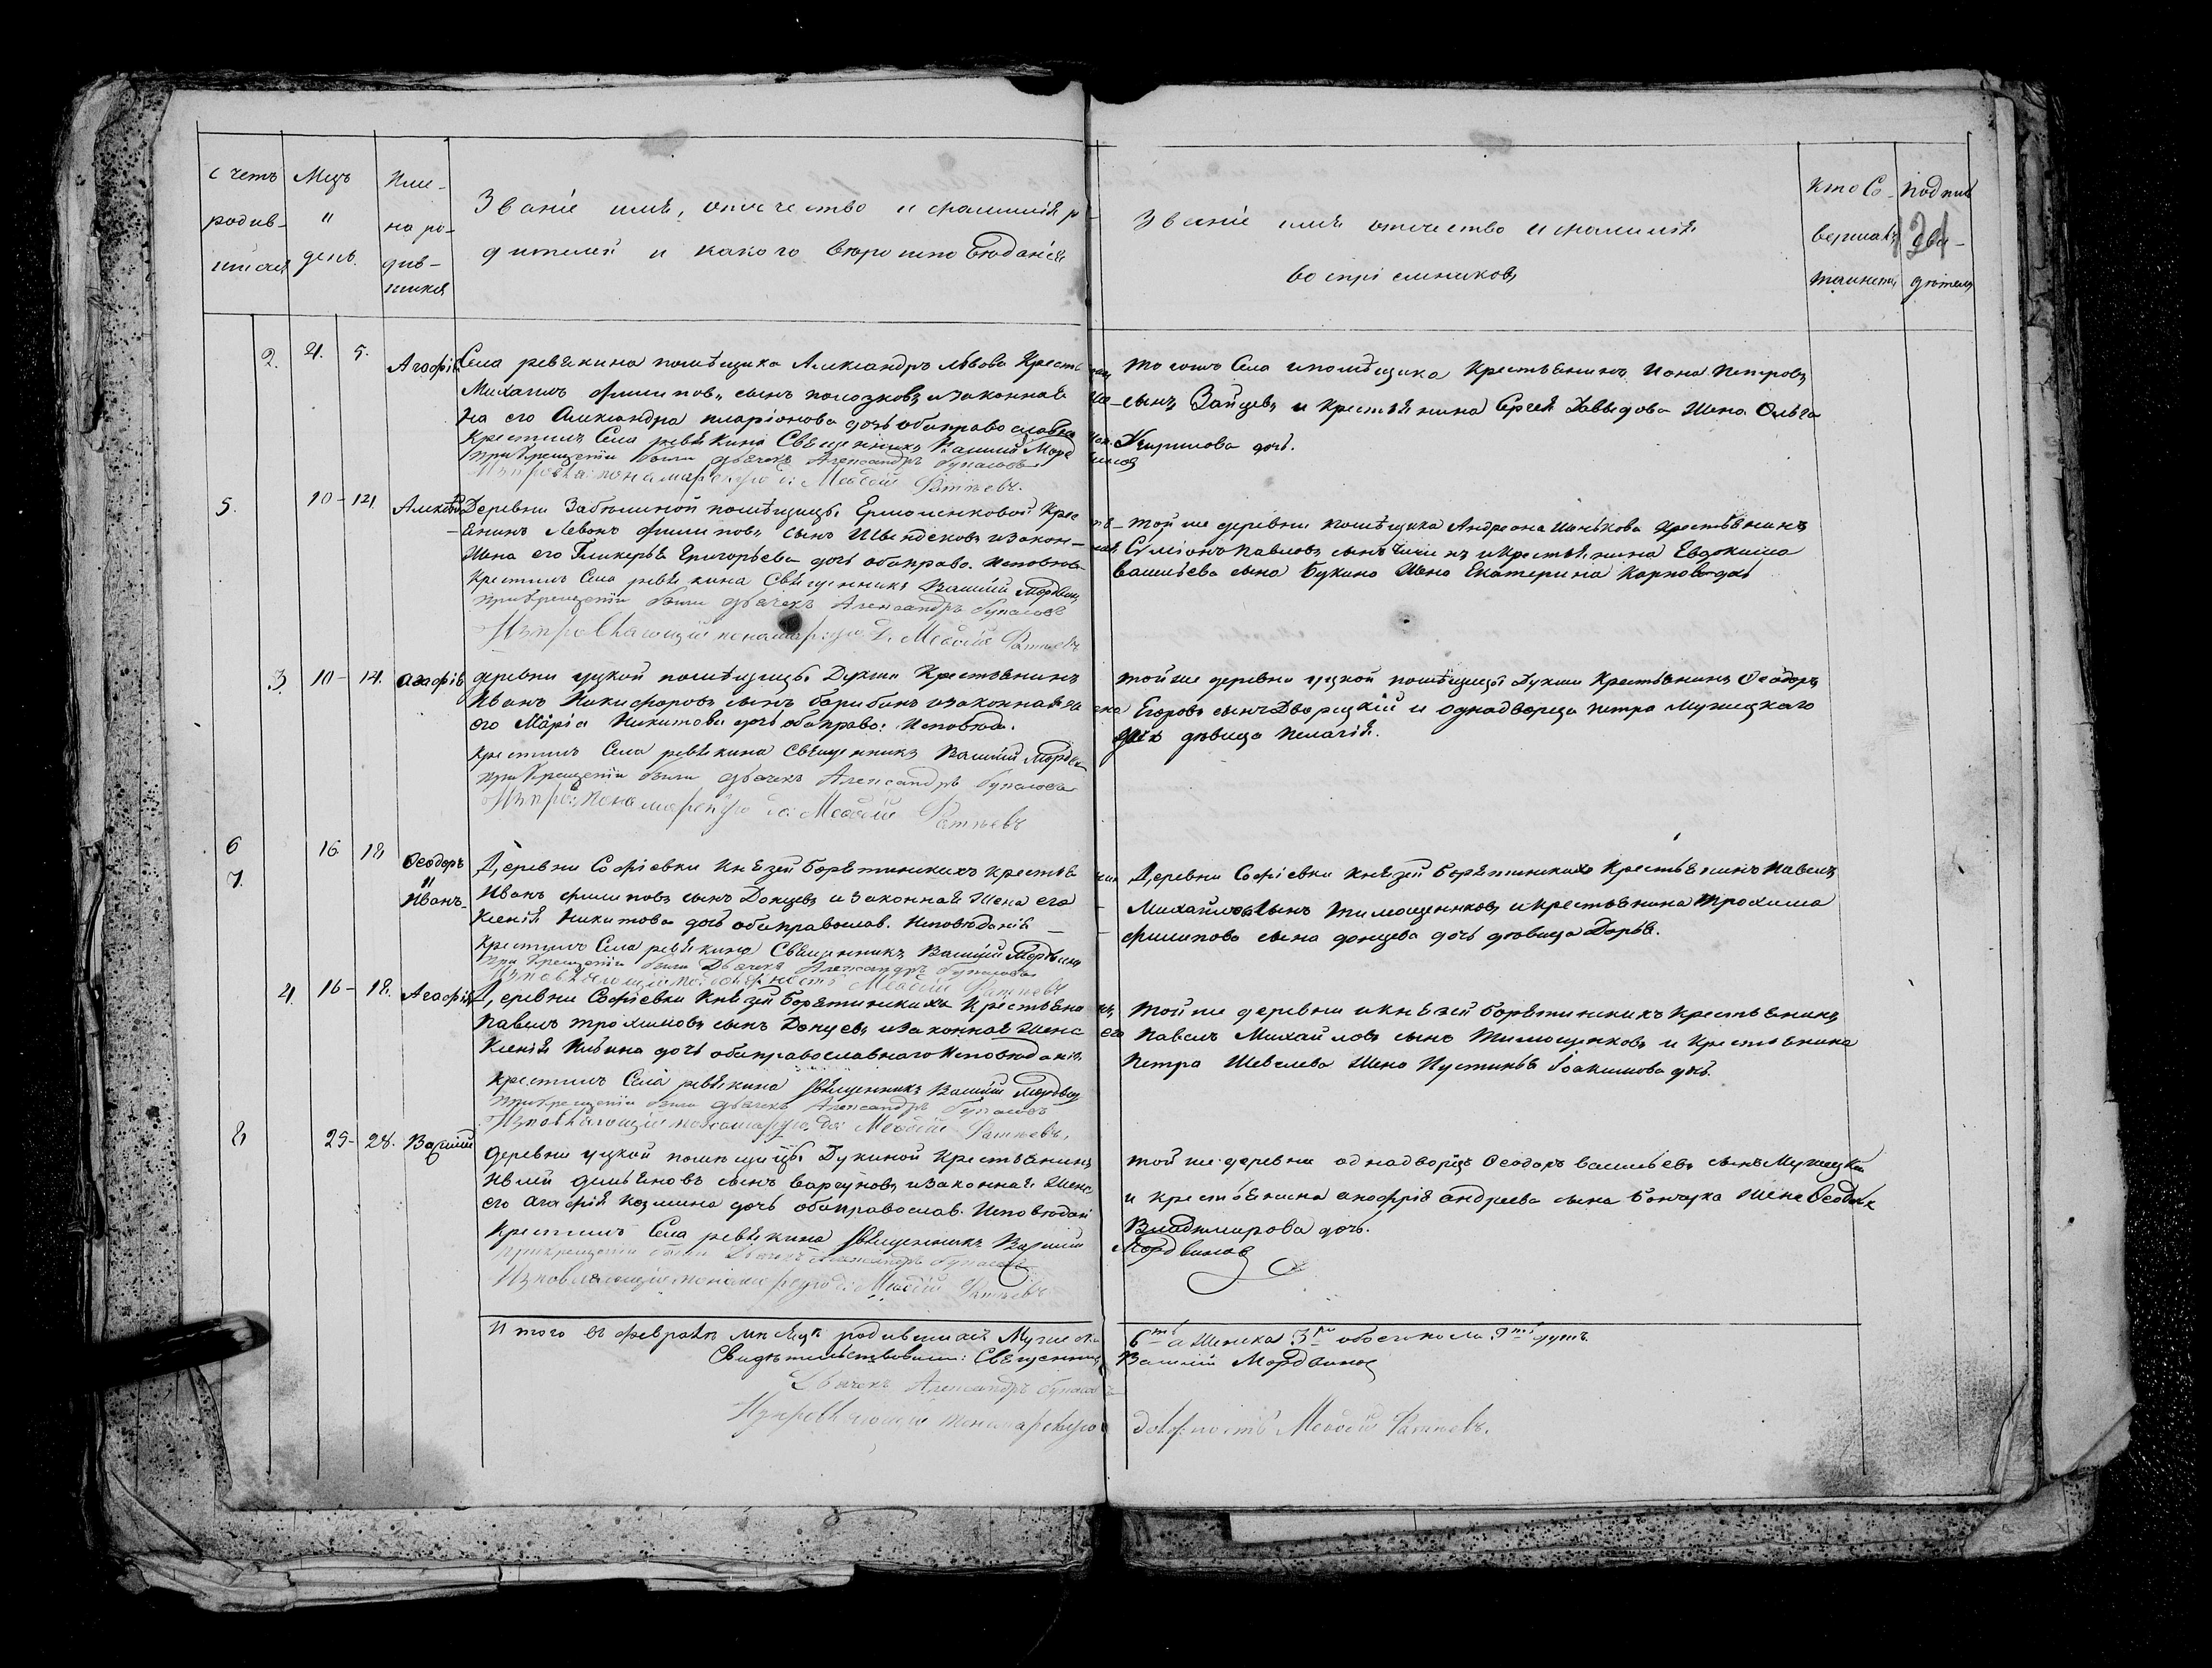 счетъ
родив-
шихся
Мцъ
"
день.
Име-
на ро-
див-
шихся
Званіе имѣ, отечество и фамилія р-
дителей и какого вѣроисповѣданія
Званіе имѣ отечество и фамилія
воспріемниковъ
Кто Со-
вершалъ
таинство
Подпись
сви-
дѣтелей
2. 4. 5. Агафія
Села ревякина помѣщика Александра Львова Кресть
Михаилъ филиповъ сынъ полозковъ и законная
на его Александра иларіонова дочь оба православна
Крестилъ Села ревякина Священникъ Василій Морд
При Крещеніи были дьячекъ Александръ
пономарскую до: Меѳодій
тогожъ Села и помѣщика Крестьянинъ Иона Петровъ
сынъ Зайцевъ и Крестьянина Сергея Давыдова Жена Ольга
Кирилова дочь.
5. 10 - 14
Деревни помѣщицы Ермоленковой Крес
Левонъ филиповъ сынъ и закон-
Жена его Гликерья Григорьева дочь оба право. исповѣд
Крестилъ Села ревякина Священникъ Василій Мордвин
При Крещеніи были дьячекъ Александръ
Исправляющій понамар:ую д: Меѳодій
той же деревни помѣщика Андреяна Шенькова Крестьянинъ
Симіонъ Павловъ сынъ и крестьянина Евдокима
васильева сына Букина Жена Екатерина Карпова дочь
3. 10 - 14. Агафія
деревни уцкой помѣщицы Дукши Крестьянинъ
Иванъ Никифоровъ сынъ и законная же
его Марія Никитова дочь оба право: исповѣд.
Крестилъ Села ревякина Священникъ Василій Мордви
При Крещеніи были дьячекъ Александръ
Испра: понамарскую до: Меѳодій
той же деревни уцкой помѣщицы Дукши Крестьянинъ Ѳеодоръ
Егоровъ сынъ Дворецкій и однадворца Петра Мужецкаго
дочь дѣвица Пелагія.
6 16 18 Ѳеодоръ
7. и
Иванъ
Деревни Софіевки Князей Борятинскихъ крестья
Иванъ филиповъ сынъ Донцевъ и законная Жена его
Ксенія Никитова дочь оба православ. исповѣданія
Крестилъ Села ревякина Священникъ Василій Мордвин
При Крещеніи были Дьячекъ Александръ
Меѳодій
Деревни Софіевки Князей Борятинскихъ Крестьянинъ Павелъ
Михайловъ сынъ Тимощенковъ и крестьянина Трохима
филипова сына донцева дочь дѣвица Дарья.
4. 16 - 18. Агафія
Деревни Софіевки Князей Борятинскихъ Крестьяни
Павелъ Трохимовъ сынъ Донцевъ и законная Жена
Ксенія Ильина дочь оба православнаго исповѣданія
крестилъ Села ревякина Священникъ Василій Мордвин
При Крещеніи были дьячекъ Александръ
Исправляющій понамарскую до: Меѳодій
той же деревни и князей Борятинскихъ Крестьянинъ
Павелъ Михайловъ сынъ Тимощенковъ и Крестьянина
Петра Шевелева Жена Иустинья Іоакимова дочь.
8 25 - 28. Василій
деревни уцкой помѣщицы Дукиной Крестьянинъ
Демьяновъ сынъ варгуновъ и законная Жена
его Агафія Козмина дочь оба православ. исповѣдані
Крестилъ Села ревякина Священникъ Василій
При крещеніи были Дьячекъ Александръ
Исправляющій понамарскую д: Меѳодій
той же деревни однадворецъ Ѳеодоръ васильевъ сынъ Мужецкій
и крестьянина анофрія андреева сына Бончука Жена
Владимирова дочь.
Мордвиновъ
Итого въ февралѣ мѣсяцѣ родившихся Мужеска
6ть а Женска 3 обоего пола 9ть душъ
Свидѣтельствовали: Священникъ
Василій Мордвиновъ
Дьячекъ Александръ
Исправляющій понамарскую
должность Меѳодій